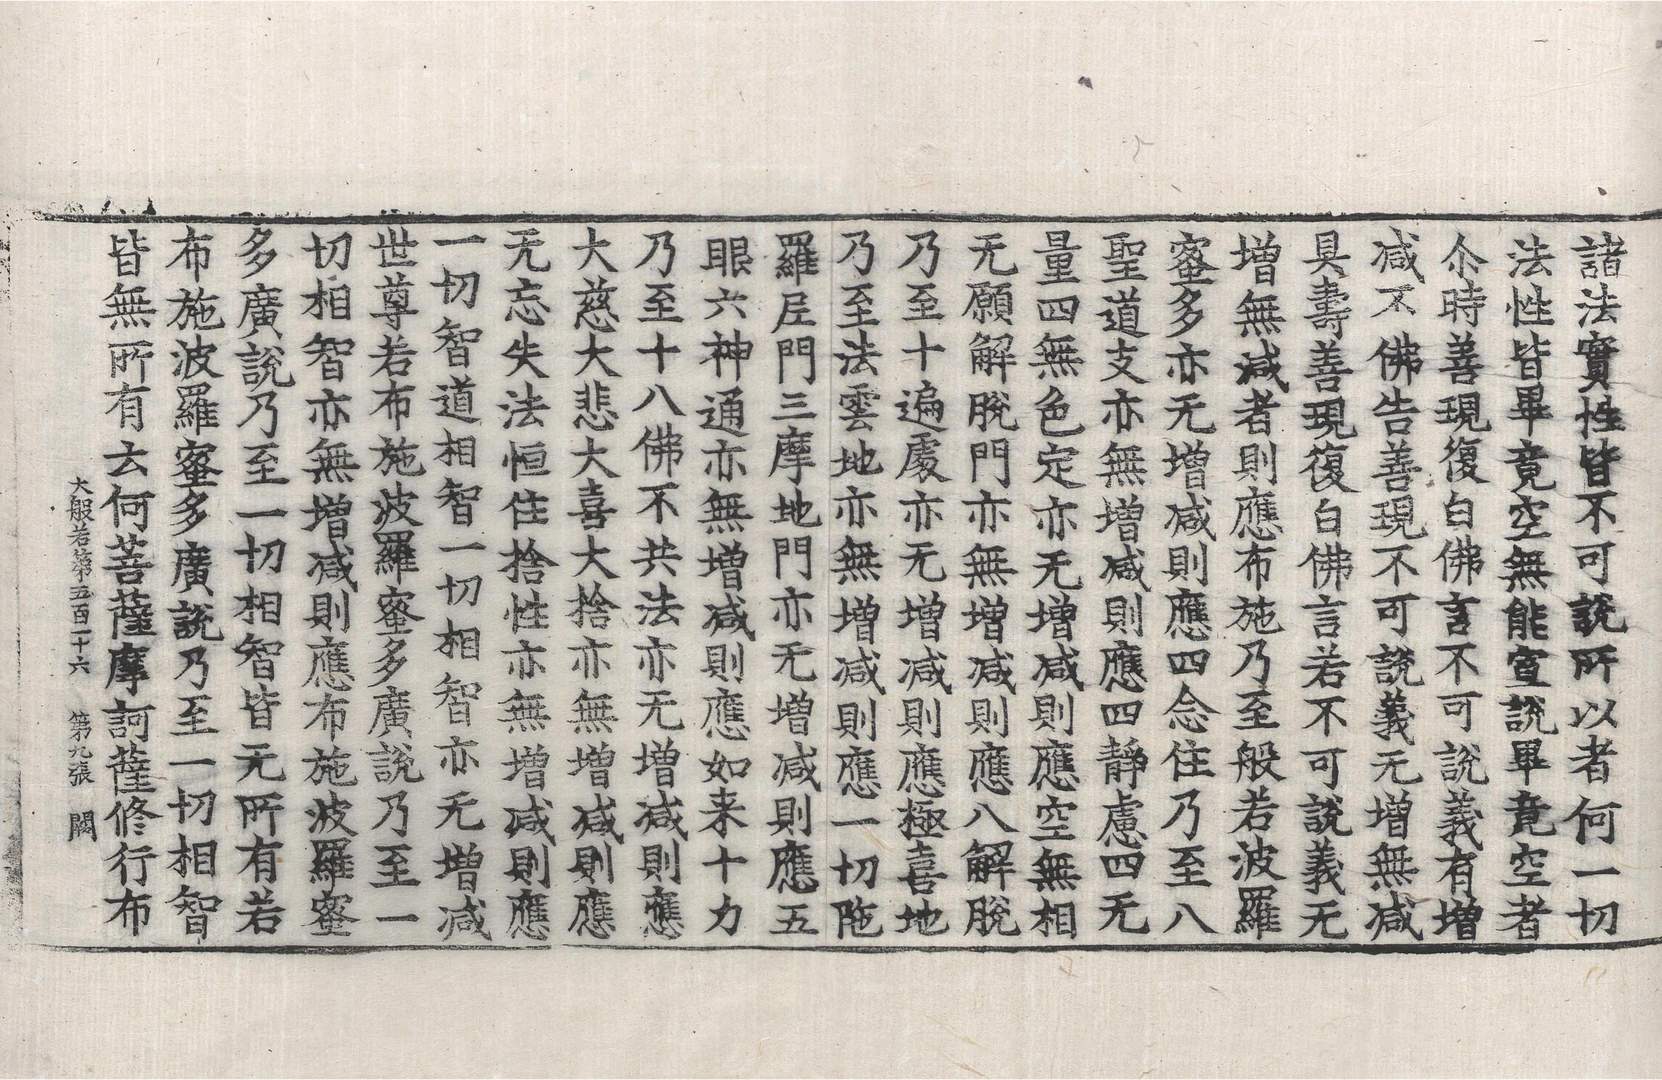 諸法實性皆不可說所以者何一切
法性皆畢竟空無能宣說畢竟空者
尒時善現復白佛言不可說義有增
减不佛告善現不可說義无增無减
具壽善現復白佛言若不可說義无
增無减者則應布施乃至般若波羅
蜜多亦无增减則應四念住乃至八
聖道支亦無增减則應四靜慮四无
量四無色定亦无增减則應空無相
无願解脫門亦無增减則應八解脫
乃至十遍處亦无增减則應極喜地
乃至法雲地亦無增减則應一切陁
羅尼門三摩地門亦无增减則應五
眼六神通亦無增减則應如来十力
乃至十八佛不共法亦无增减則應
大慈大悲大喜大捨亦無增减則應
无忘失法恒住捨性亦無增减則應
一切智道相智一切相智亦无增减
世尊若布施波羅蜜多廣說乃至一
切相智亦無增减則應布施波羅蜜
多廣說乃至一切相智皆无所有若
布施波羅蜜多廣說乃至一切相智
皆無所有云何菩薩摩訶薩修行布
大般若第五百二十六　第九張　闕